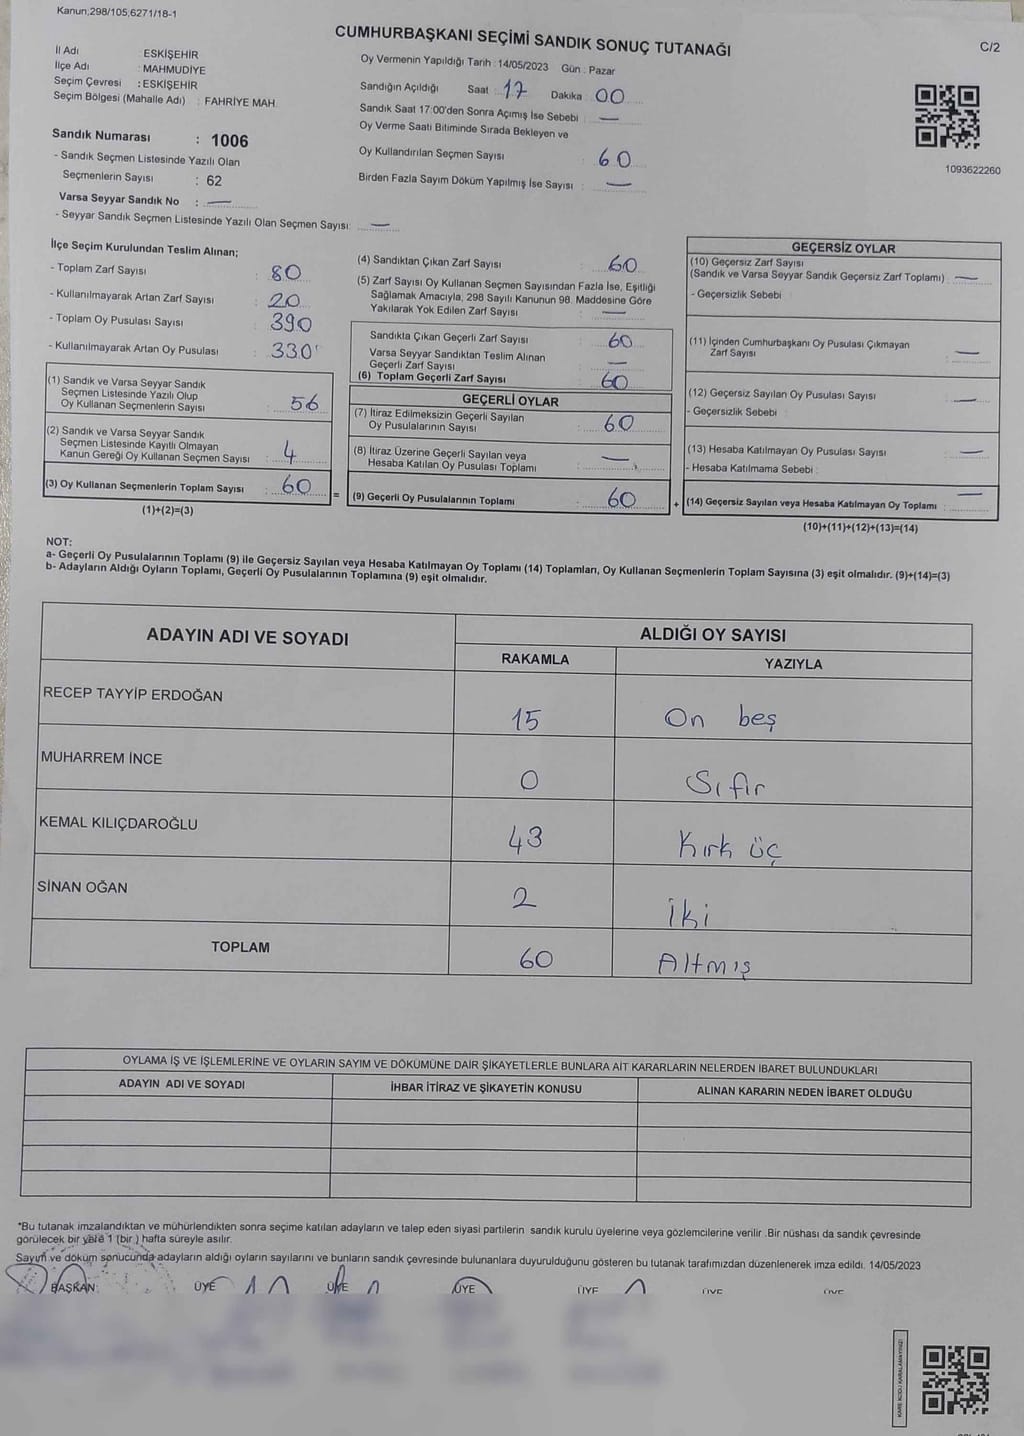 Kanun;298/105;6271/18-1
CUMHURBAŞKANI SEÇİMİ SANDIK SONUÇ TUTANAĞI
C/2
İl Adı : ESKİŞEHİR
İlçe Adı : MAHMUDİYE
Seçim Çevresi : ESKİŞEHİR
Seçim Bölgesi (Mahalle Adı) : FAHRİYE MAH.
Oy Vermenin Yapıldığı Tarih : 14/05/2023 Gün : Pazar
Sandığın Açıldığı Saat : 17 Dakika 00
Sandık Saat 17:00'den Sonra Açımış İse Sebebi : —
Oy Verme Saati Bitiminde Sırada Bekleyen ve
Oy Kullandırılan Seçmen Sayısı : 60
Birden Fazla Sayım Döküm Yapılmış İse Sayısı : —
1093622260
Sandık Numarası : 1006
- Sandık Seçmen Listesinde Yazılı Olan
Seçmenlerin Sayısı : 62
Varsa Seyyar Sandık No : —
- Seyyar Sandık Seçmen Listesinde Yazılı Olan Seçmen Sayısı: —
İlçe Seçim Kurulundan Teslim Alınan;
- Toplam Zarf Sayısı : 80
- Kullanılmayarak Artan Zarf Sayısı : 20
- Toplam Oy Pusulası Sayısı : 390
- Kullanılmayarak Artan Oy Pusulası : 330
(1) Sandık ve Varsa Seyyar Sandık
Seçmen Listesinde Yazılı Olup
Oy Kullanan Seçmenlerin Sayısı : 56
(2) Sandık ve Varsa Seyyar Sandık
Seçmen Listesinde Kayıtlı Olmayan
Kanun Gereği Oy Kullanan Seçmen Sayısı : 4
(3) Oy Kullanan Seçmenlerin Toplam Sayısı : 60
(1)+(2)=(3)
(4) Sandıktan Çıkan Zarf Sayısı : 60
(5) Zarf Sayısı Oy Kullanan Seçmen Sayısından Fazla İse, Eşitliği
Sağlamak Amacıyla, 298 Sayılı Kanunun 98. Maddesine Göre
Yakılarak Yok Edilen Zarf Sayısı : —
Sandıkta Çıkan Geçerli Zarf Sayısı : 60
Varsa Seyyar Sandıktan Teslim Alınan
Geçerli Zarf Sayısı : —
(6) Toplam Geçerli Zarf Sayısı : 60
GEÇERLİ OYLAR
(7) İtiraz Edilmeksizin Geçerli Sayılan
Oy Pusulalarının Sayısı : 60
(8) İtiraz Üzerine Geçerli Sayılan veya
Hesaba Katılan Oy Pusulası Toplamı : —
= (9) Geçerli Oy Pusulalarının Toplamı : 60
GEÇERSİZ OYLAR
(10) Geçersiz Zarf Sayısı
(Sandık ve Varsa Seyyar Sandık Geçersiz Zarf Toplamı) : —
- Geçersizlik Sebebi :
(11) İçinden Cumhurbaşkanı Oy Pusulası Çıkmayan
Zarf Sayısı : —
(12) Geçersiz Sayılan Oy Pusulası Sayısı : —
- Geçersizlik Sebebi :
(13) Hesaba Katılmayan Oy Pusulası Sayısı : —
- Hesaba Katılmama Sebebi :
+ (14) Geçersiz Sayılan veya Hesaba Katılmayan Oy Toplamı : —
(10)+(11)+(12)+(13)=(14)
NOT:
a- Geçerli Oy Pusulalarının Toplamı (9) ile Geçersiz Sayılan veya Hesaba Katılmayan Oy Toplamı (14) Toplamları, Oy Kullanan Seçmenlerin Toplam Sayısına (3) eşit olmalıdır. (9)+(14)=(3)
b- Adayların Aldığı Oyların Toplamı, Geçerli Oy Pusulalarının Toplamına (9) eşit olmalıdır.
ADAYIN ADI VE SOYADI
ALDIĞI OY SAYISI
RAKAMLA YAZIYLA
RECEP TAYYİP ERDOĞAN 15 On beş
MUHARREM İNCE 0 Sıfır
KEMAL KILIÇDAROĞLU 43 Kırk üç
SİNAN OĞAN 2 İki
TOPLAM 60 Altmış
OYLAMA İŞ VE İŞLEMLERİNE VE OYLARIN SAYIM VE DÖKÜMÜNE DAİR ŞİKAYETLERLE BUNLARA AİT KARARLARIN NELERDEN İBARET BULUNDUKLARI
ADAYIN ADI VE SOYADI İHBAR İTİRAZ VE ŞİKAYETİN KONUSU ALINAN KARARIN NEDEN İBARET OLDUĞU
*Bu tutanak imzalandıktan ve mühürlendikten sonra seçime katılan adayların ve talep eden siyasi partilerin sandık kurulu üyelerine veya gözlemcilerine verilir .Bir nüshası da sandık çevresinde
görülecek bir yere 1 (bir ) hafta süreyle asılır.
Sayım ve döküm sonucunda adayların aldığı oyların sayılarını ve bunların sandık çevresinde bulunanlara duyurulduğunu gösteren bu tutanak tarafımızdan düzenlenerek imza edildi. 14/05/2023
BAŞKAN ÜYE ÜYE ÜYE ÜYE ÜYE ÜYE
KARE KODU KARALAMAYINIZ!